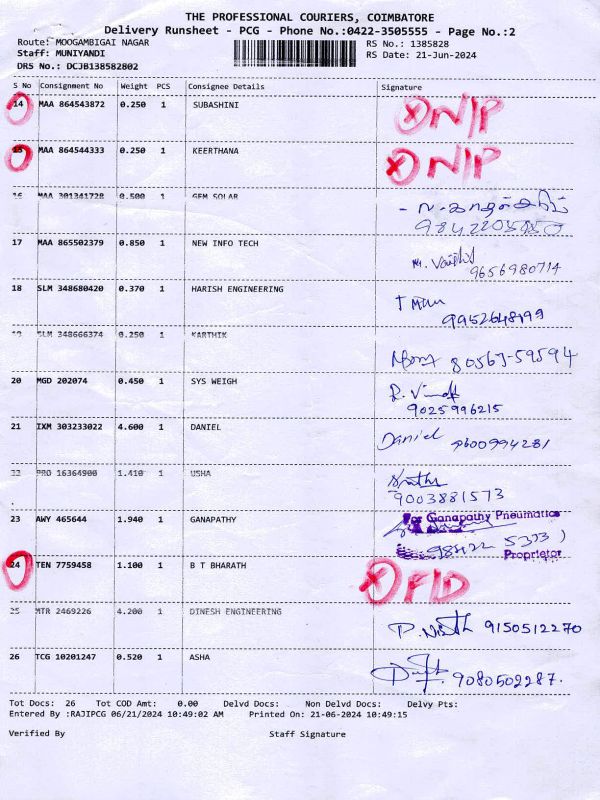 THE PROFESSIONAL COURIERS, COIMBATORE
Delivery Runsheet - PCG - Phone No.:0422-3505555 - Page No.:2
Route: MOOGAMBIGAI NAGAR RS No.: 1385828
Staff: MUNIYANDI RS Date: 21-Jun-2024
DRS No.: DCJB138582802
S No Consignment No Weight PCS Consignee Details Signature
14 MAA 864543872 0.250 1 SUBASHINI N/P
15 MAA 864544333 0.250 1 KEERTHANA N/P
16 MAA 301341728 0.500 1 GEM SOLAR
17 MAA 865502379 0.850 1 NEW INFO TECH
9656980714
18 SLM 348680420 0.370 1 HARISH ENGINEERING
9952648199
19 SLM 348666374 0.250 1 KARTHIK
80567-59594
20 MGD 202074 0.450 1 SYS WEIGH
9025996215
21 IXM 303233022 4.600 1 DANIEL Daniel 9600994281
22 PRO 16364900 1.410 1 USHA
9003881573
23 AWY 465644 1.940 1 GANAPATHY For Ganapathy Pneumatics
Proprietor
24 TEN 7759458 1.100 1 B T BHARATH
25 MTR 2469226 4.200 1 DINESH ENGINEERING
9150512270
26 TCG 10201247 0.520 1 ASHA
9080502287.
Tot Docs: 26 Tot COD Amt: 0.00 Delvd Docs: Non Delvd Docs: Delvy Pts:
Entered By :RAJIPCG 06/21/2024 10:49:02 AM Printed On: 21-06-2024 10:49:15
Verified By Staff Signature